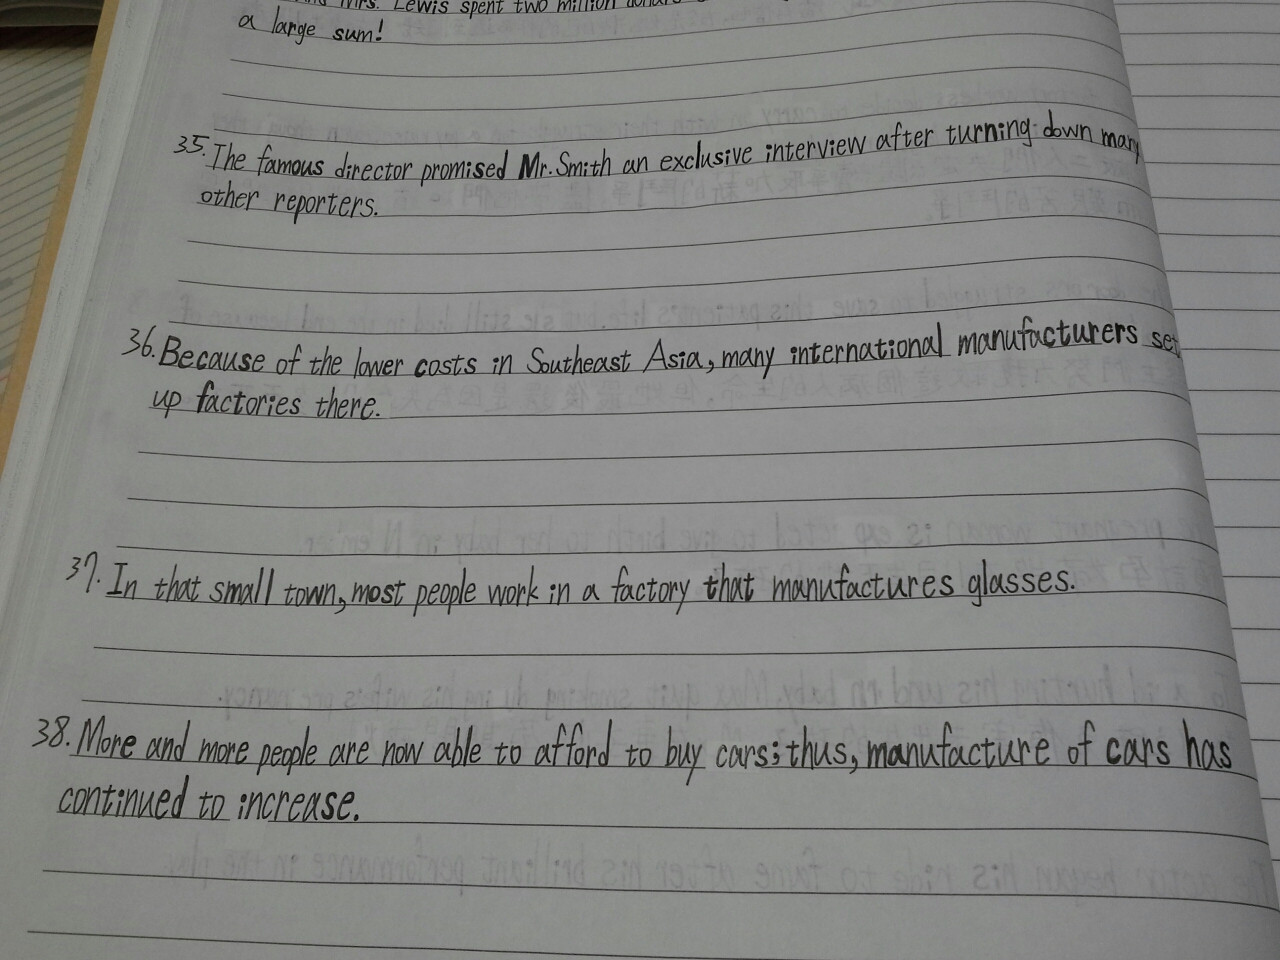 Mrs. Lewis spent two million
a large sum!
35. The famous director promised Mr. Smith an exclusive interview after turning down many
other reporters.
36. Because of the lower costs in Southeast Asia, many international manufacturers set
up factories there.
37. In that small town, most people work in a factory that manufactures glasses.
38. More and more people are now able to afford to buy cars; thus, manufacture of cars has
continued to increase.